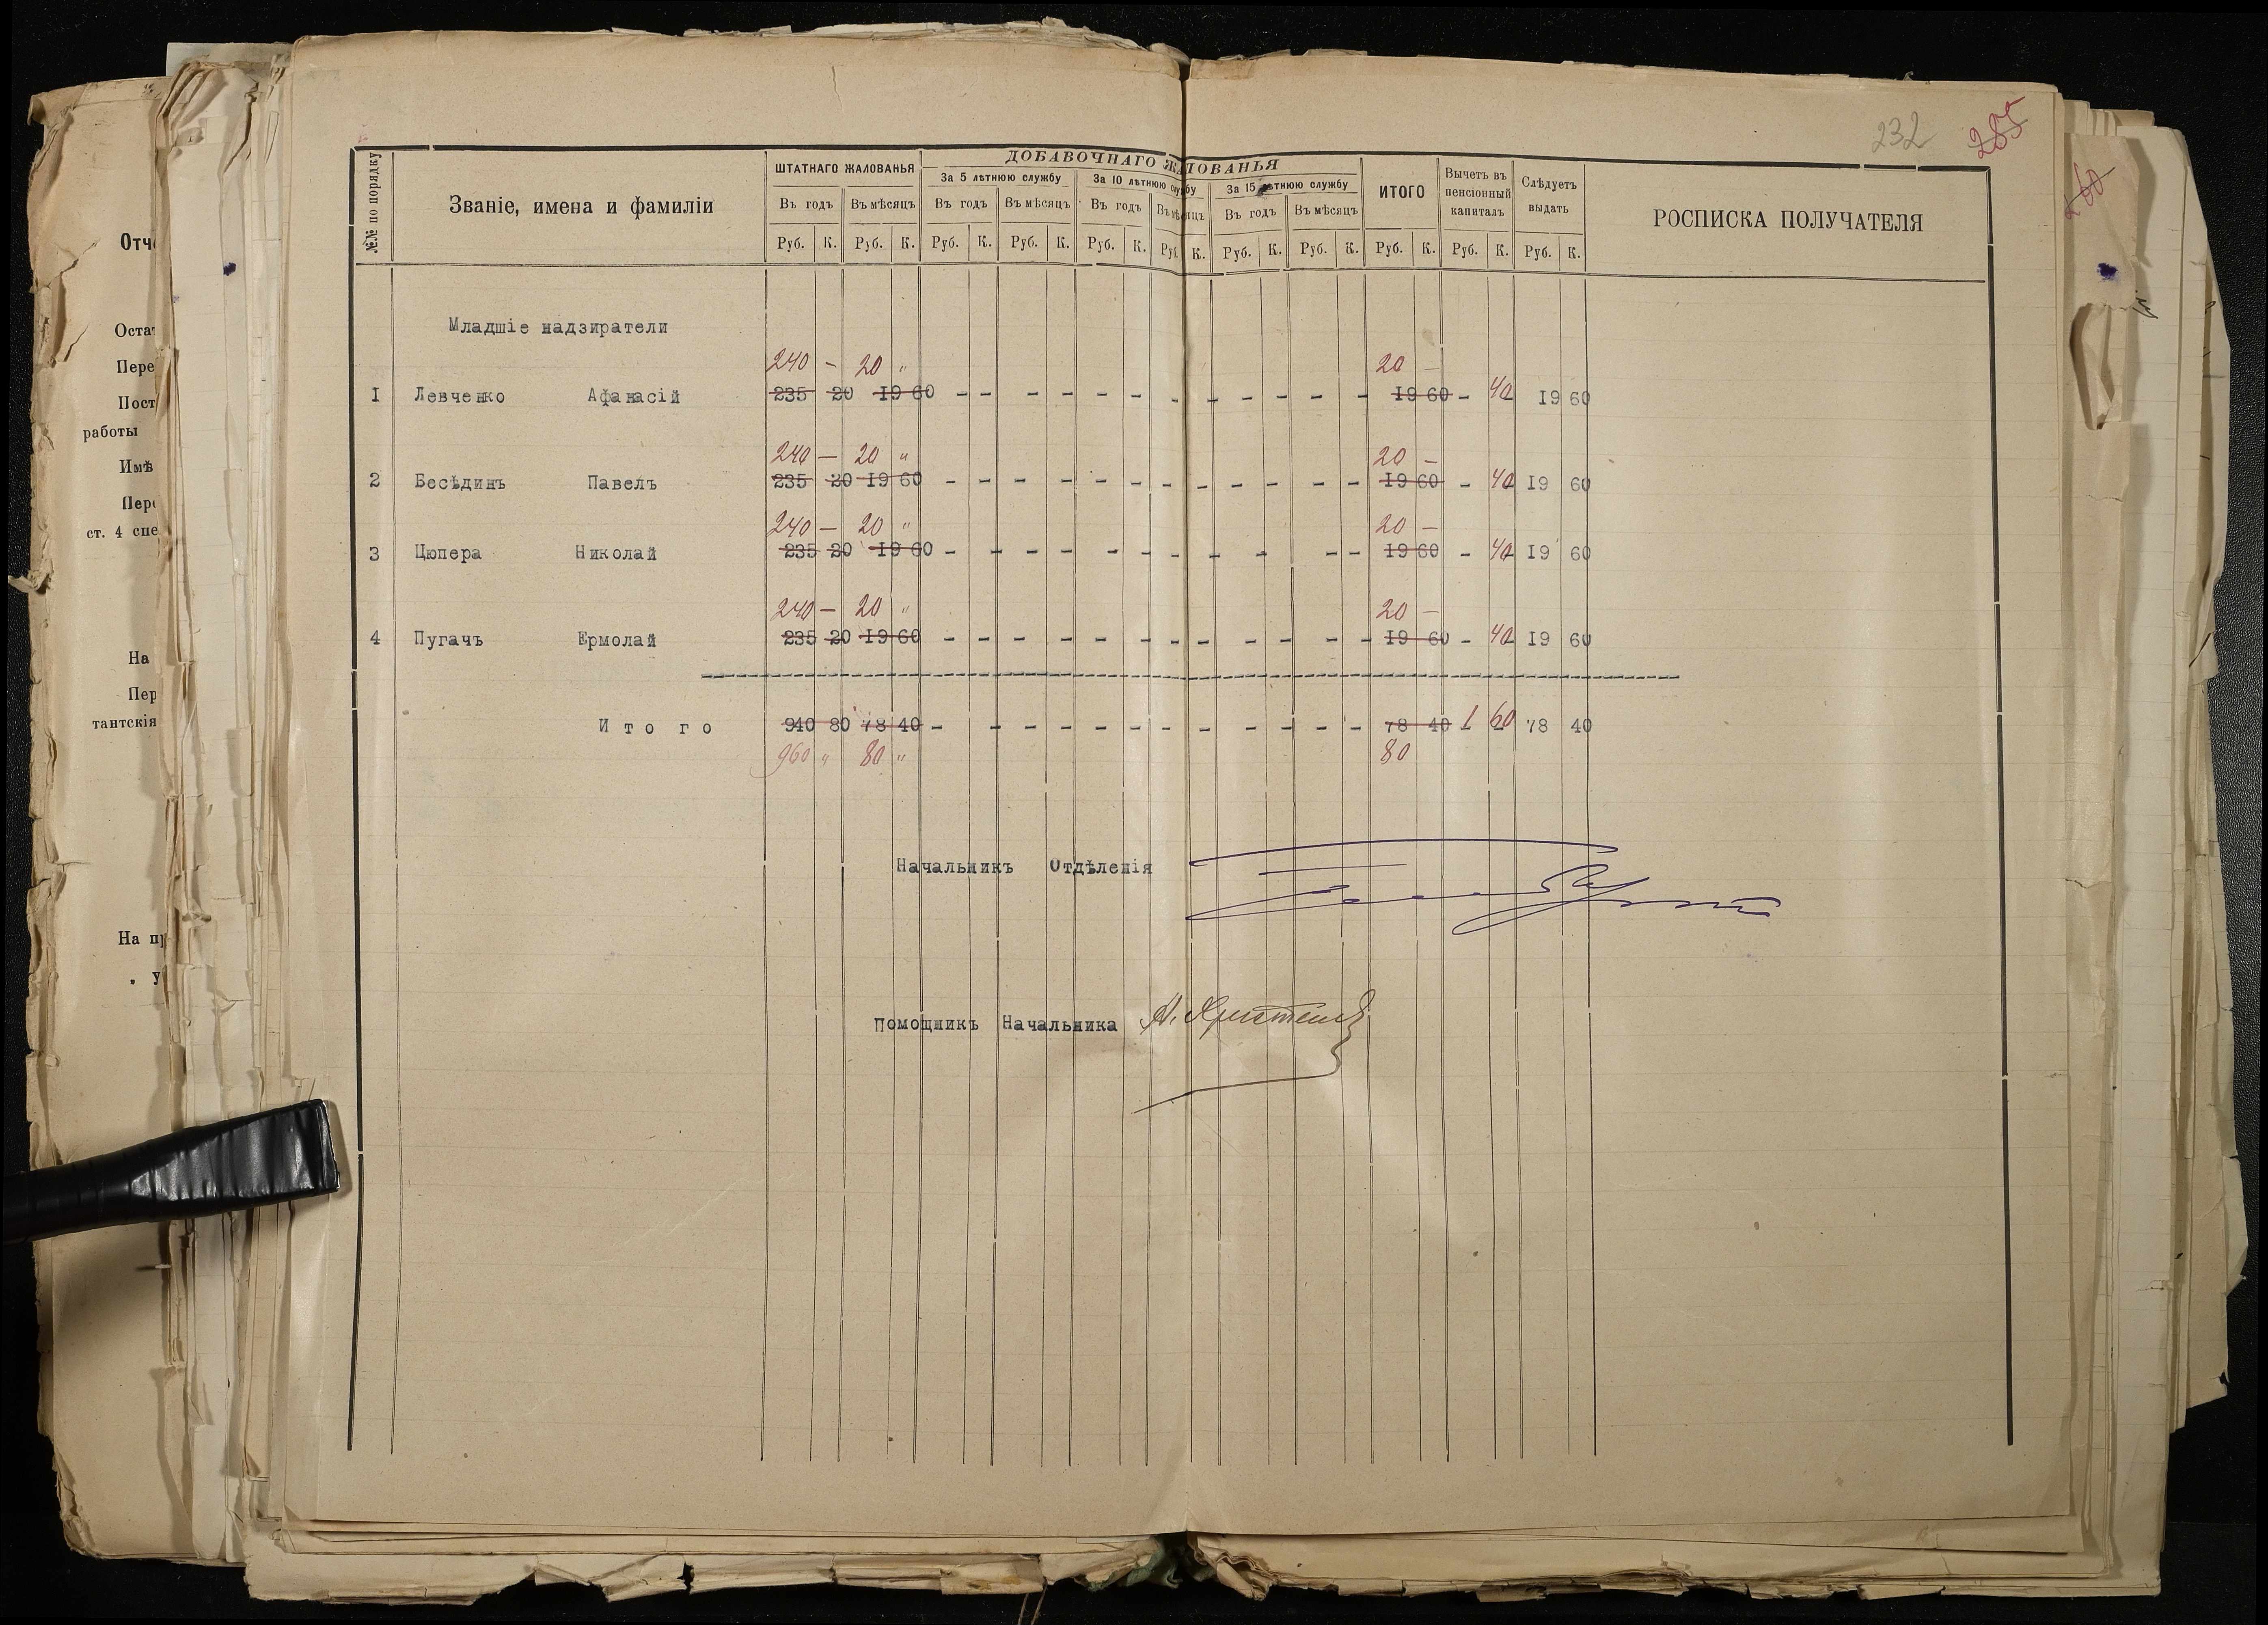 232 285
260
Отч
Оста
Пере
Пост
работы
Имѣ
Пер
ст. 4 спе
На
Пер
тантскія
На п
„ у
№№ по порядку
Званіе, имена и фамиліи
ШТАТНАГО ЖАЛОВАНЬЯ
ДОБАВОЧНАГО ЖАЛОВАНЬЯ
За 5 лѣтнюю службу За 10 лѣтнюю службу За 15 лѣтнюю службу
ИТОГО
Вычетъ въ пенсіонный капиталъ
Слѣдуетъ выдать
РОСПИСКА ПОЛУЧАТЕЛЯ
Въ годъ Въ мѣсяцъ Въ годъ Въ мѣсяцъ Въ годъ Въ мѣсяцъ Въ годъ Въ мѣсяцъ
Руб. К. Руб. К. Руб. К. Руб. К. Руб. К. Руб. К. Руб. К. Руб. К. Руб. К. Руб. К. Руб. К.
Младшіе надзиратели
240 — 20 „ 20 —
1 Левченко Афанасій 235 20 19 60 - - - - - - - - - - - - 19 60 - 40 19 60
240 — 20 „ 20 —
2 Бесѣдинъ Павелъ 235 20 19 60 - - - - - - - - - - - - 19 60 - 40 19 60
240 — 20 „ 20 —
3 Цюпера Николай 235 20 19 60 - - - - - - - - - - - 19 60 - 40 19 60
240 — 20 „ 20 —
4 Пугачъ Ермолай 235 20 19 60 - - - - - - - - - - - - 19 60 - 40 19 60
Итого 940 80 78 40 - - - - - - - - - - - - 78 40 1 60 78 40
960 „ 80 „ 80
Начальникъ Отдѣленія
Помощникъ Начальника